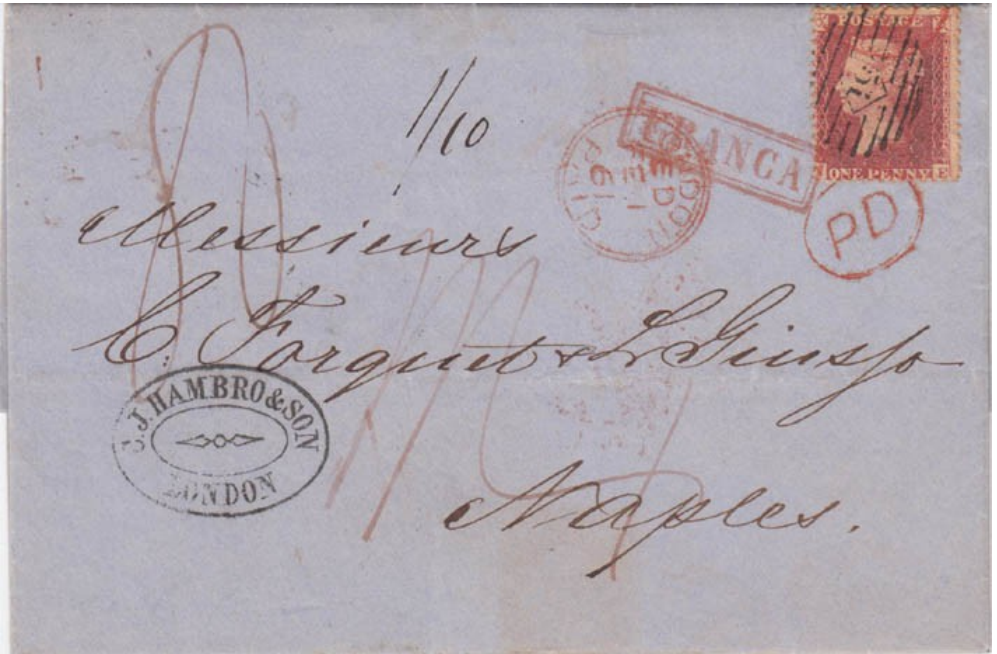 POSTAGE
ONE PENNY
1/10
FRANCA
LONDON
PAID
61
PD
Messieurs
C. Forquet & L Giusso
C. J. HAMBRO & SON
LONDON
Naples.